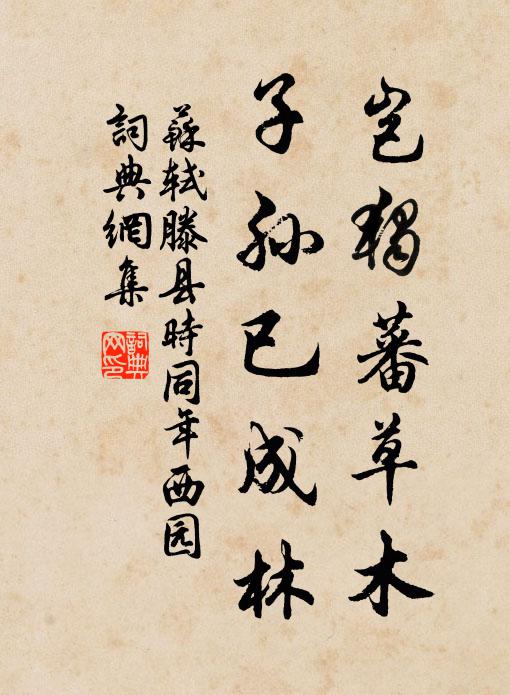 岂独蕃草木
子孙已成林
蘇轼滕县時同年西园
詞典網集
詞典網印